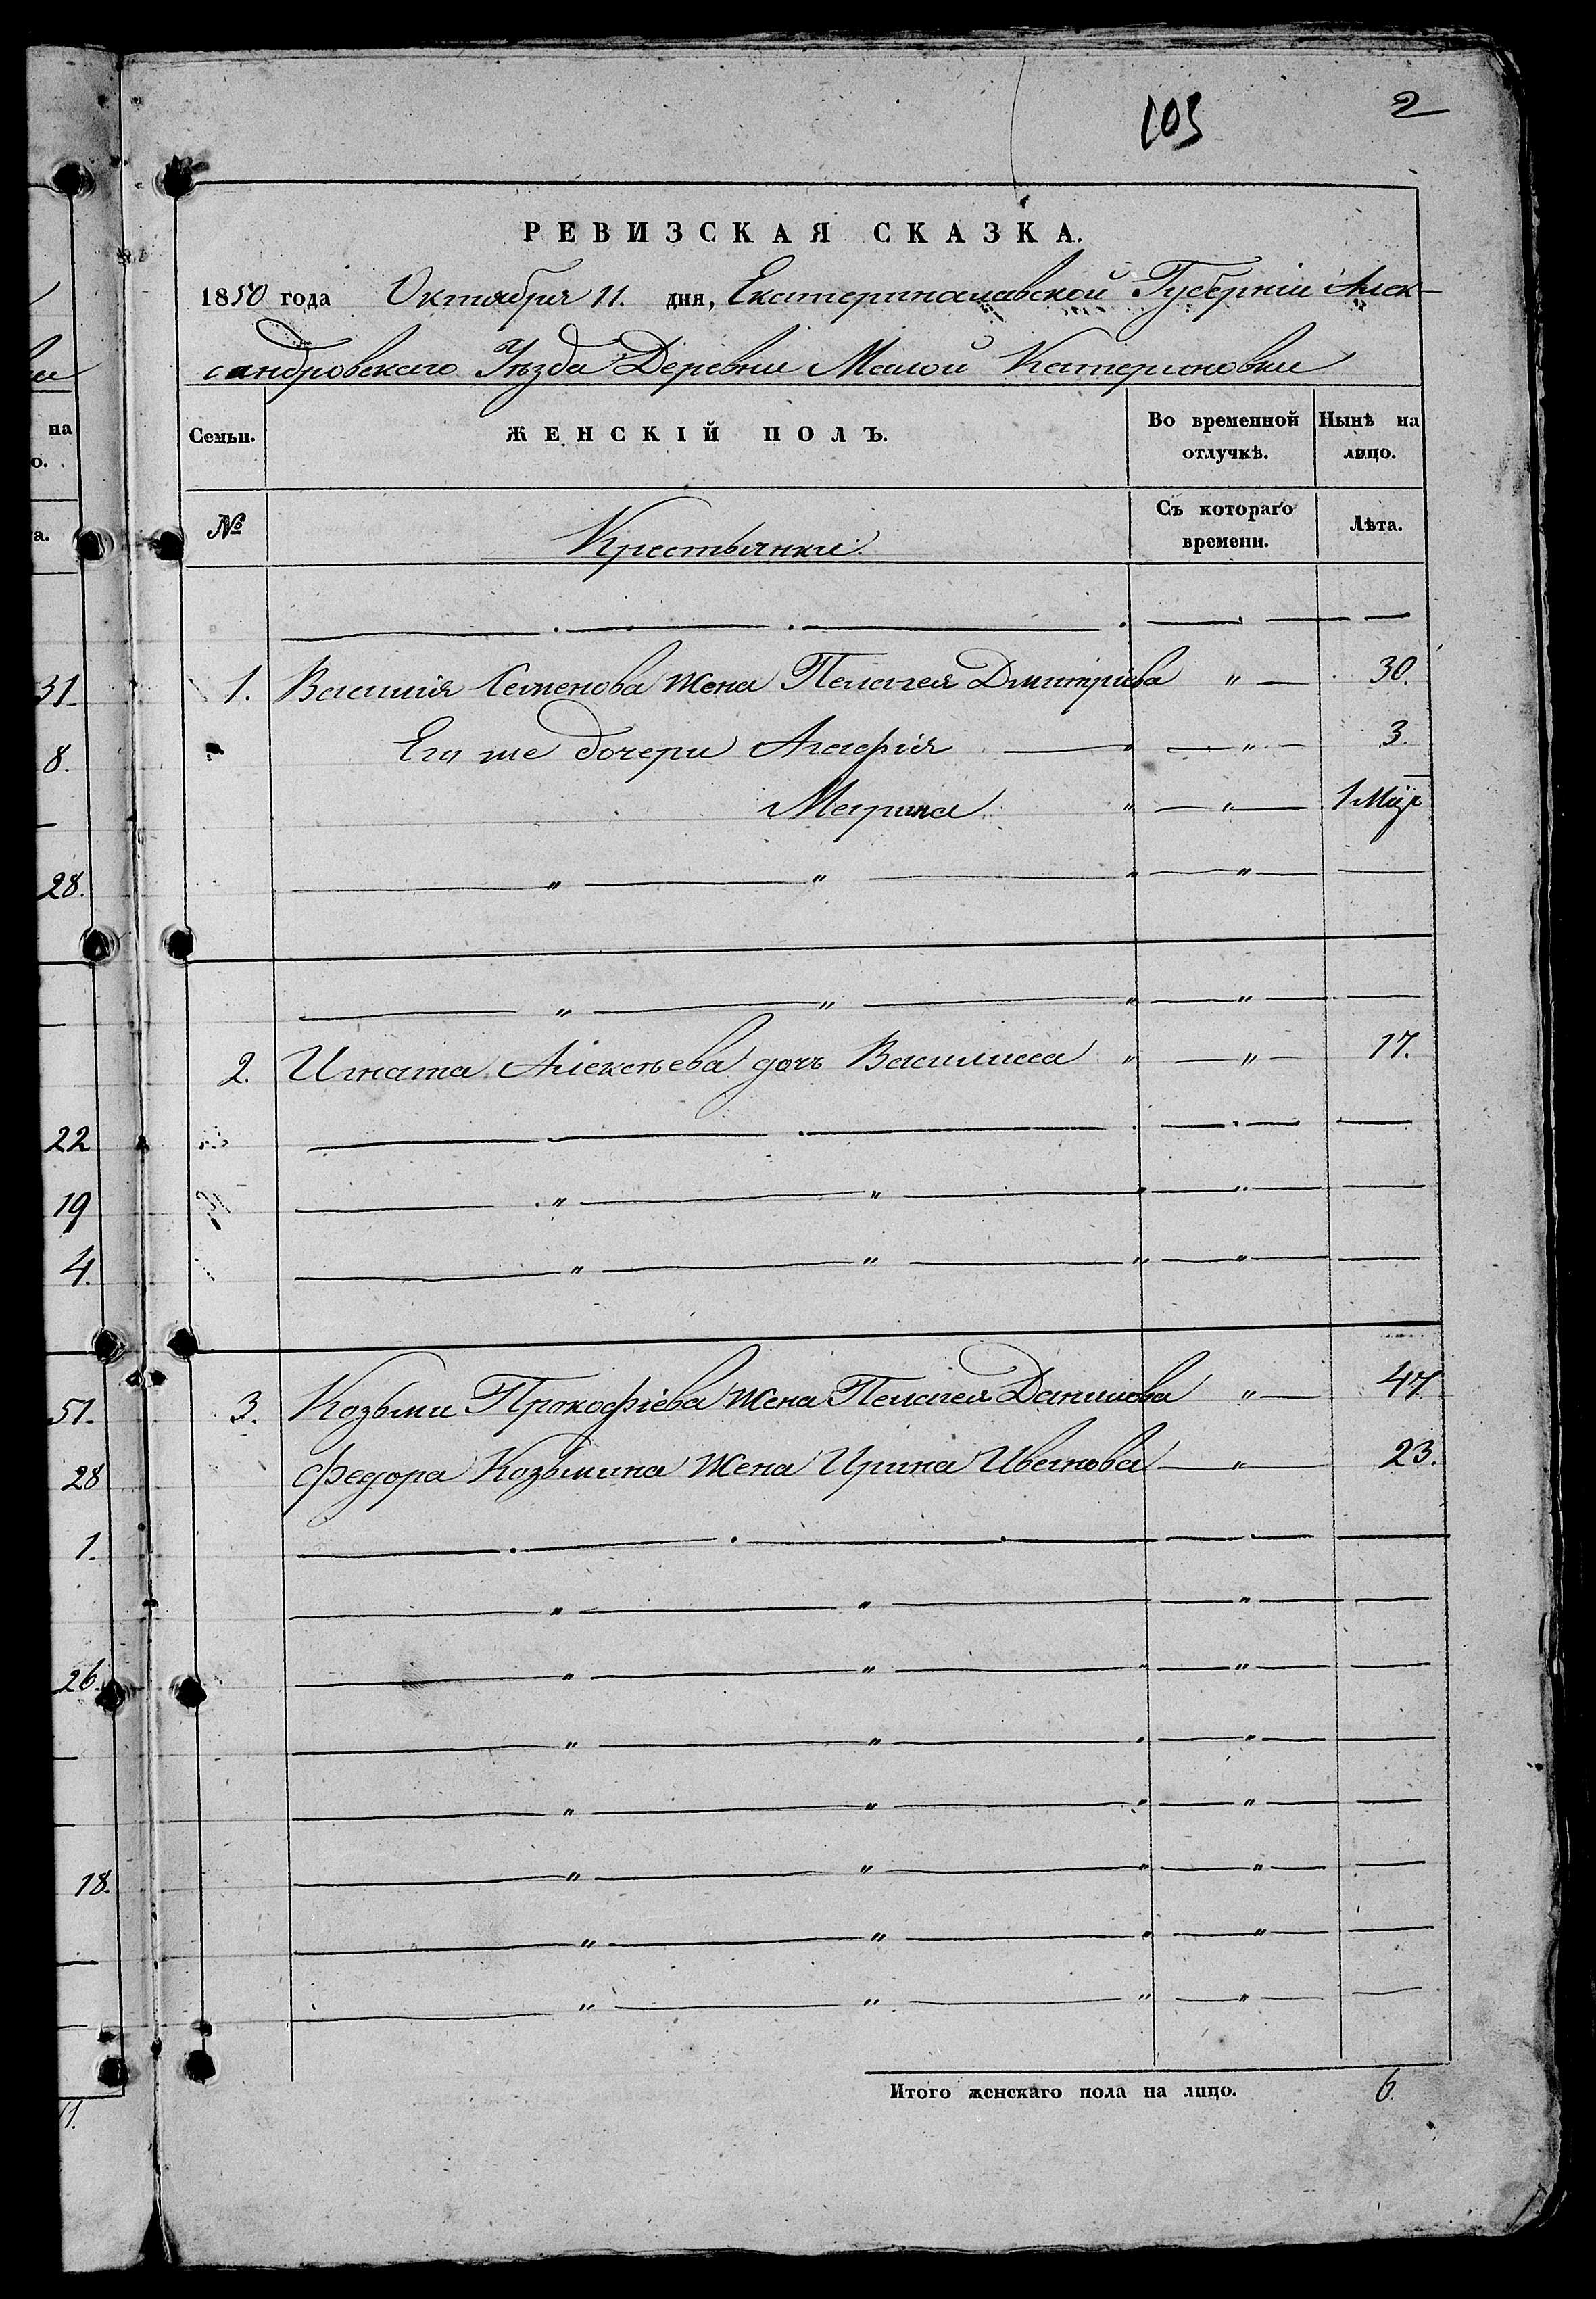 103 2
РЕВИЗСКАЯ СКАЗКА.
1850 года Октября 11. дня, Екатеринославской Губерніи Алек-
сандровскаго Уѣзда Деревни Малой Катериновки
на Семьи. ЖЕНСКІЙ ПОЛЪ. Во временной отлучкѣ. Нынѣ на лицо.
о.
а. № Крестьянки. Съ котораго времени. Лѣта.
31 1. Василія Семенова жена Пелагея Дмитріева " 30.
8. Его же дочери Агафія " 3.
Марина " " 1 Мѣ
28. " " " "
" " " "
2. Игната Алексѣева дочь Василиса " " 17.
22
19 " " "
4. " " " "
51. 3. Козьми Прокофіева жена Пелагея Данилова " 47.
28 Федора Козьмина жена Ирина Иванова " 23.
1.
" " "
26. " " " "
" " "
" " " "
18. " " " "
" " " "
" " " "
Итого женскаго пола на лицо. 6.
11.